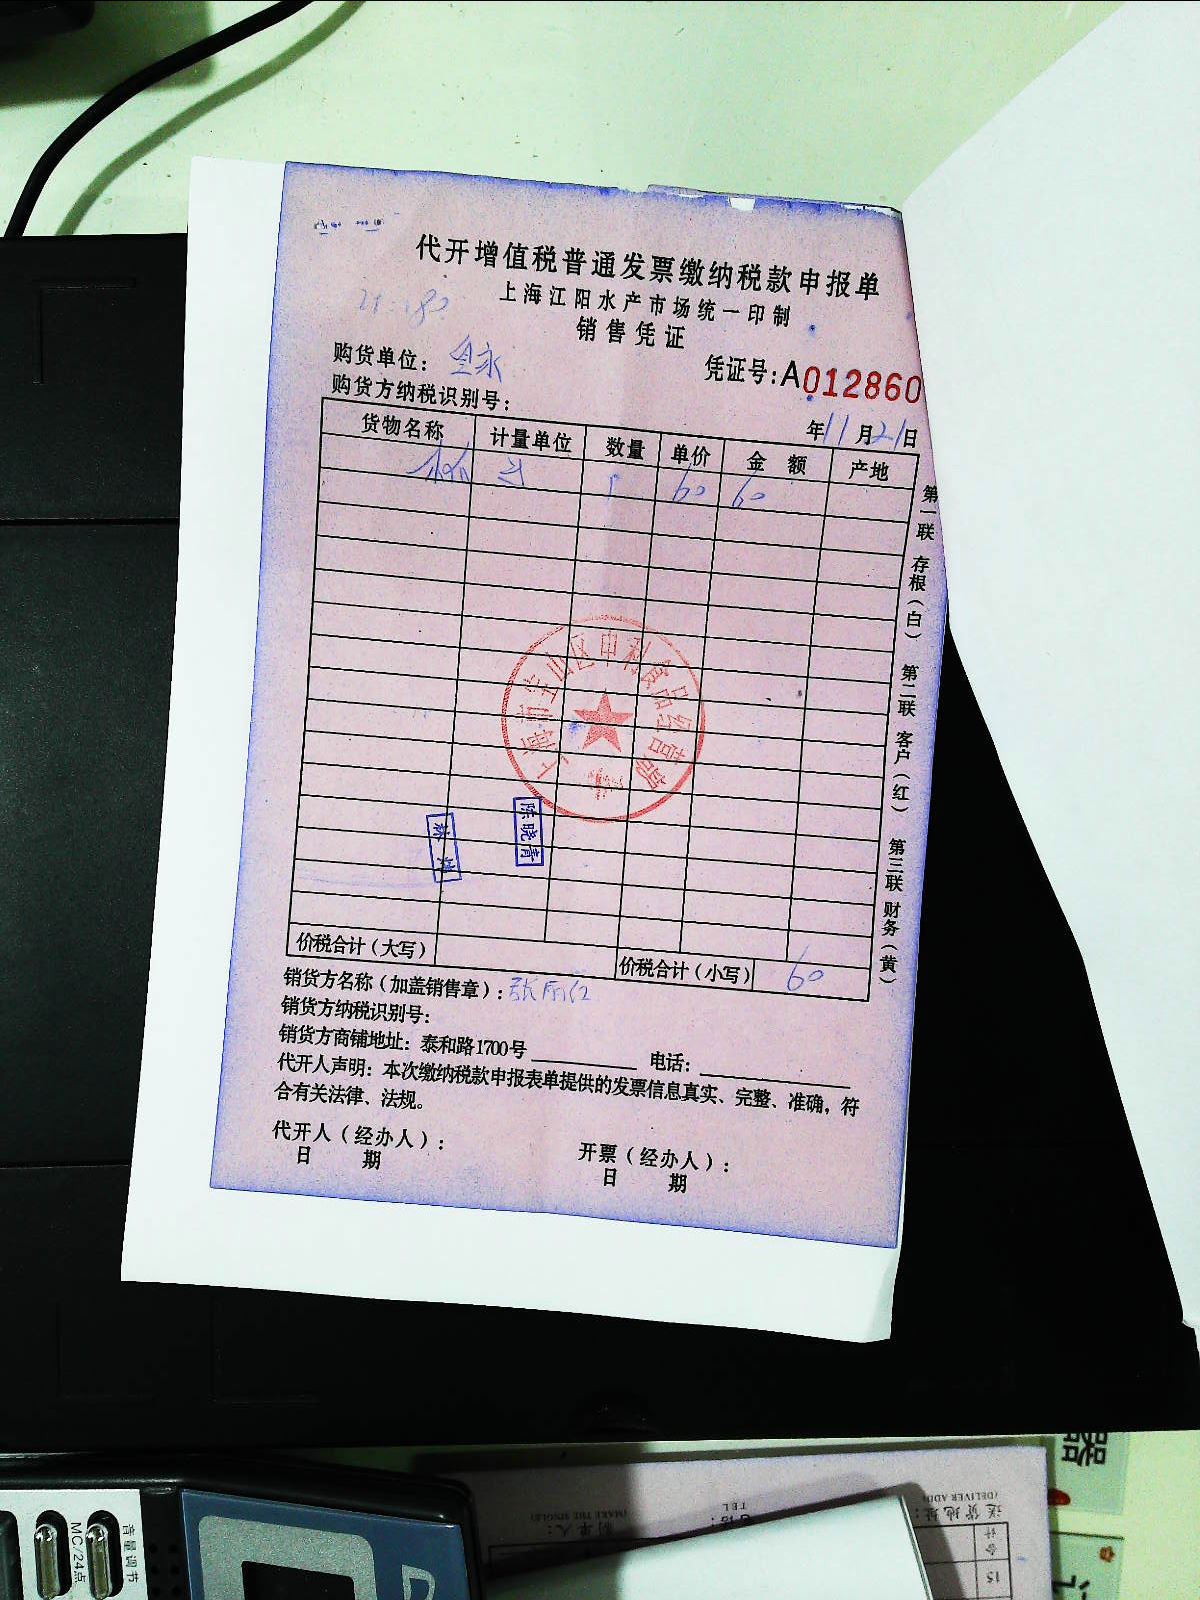 代开增值税普通发票缴纳税款申报单
上海江阳水产市场统一印制
销售凭证
购货单位：
凭证号：A012860
购货方纳税识别号：
年11月21日
货物名称 计量单位 数量 单价 金额 产地
1 60 60
第一联 存根（白） 第二联 客户（红） 第三联 财务（黄）
上海市宝山区申利食品经营部
陈晓青
价税合计（大写） 价税合计（小写） 60
销货方名称（加盖销售章）：张丽红
销货方纳税识别号：
销货方商铺地址：泰和路1700号 电话：
代开人声明：本次缴纳税款申报表单提供的发票信息真实、完整、准确，符
合有关法律、法规。
代开人（经办人）： 开票（经办人）：
日 期 日 期
器
送货地址：
(DELIVER ADD)
TEL
制单人：
(MAKE THE SINGLE)
合计
15
音量调节
MC/24点